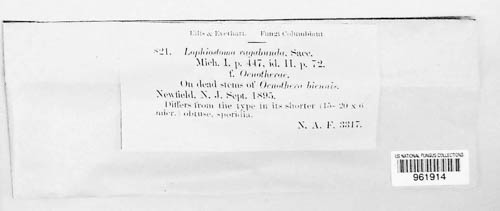 Ellis & Everhart. Fungi Columbiani
821. Lophiostoma vagabunda, Sacc.
Mich. I, p. 447, id. II. p. 72.
f. Oenotherae.
On dead stems of Oenothera biennis.
Newfield, N. J. Sept. 1895.
Differs from the type in its shorter (15-20 x 6
micr.) obtuse, sporidia.
N. A. F. 3317.
US NATIONAL FUNGUS COLLECTIONS
961914